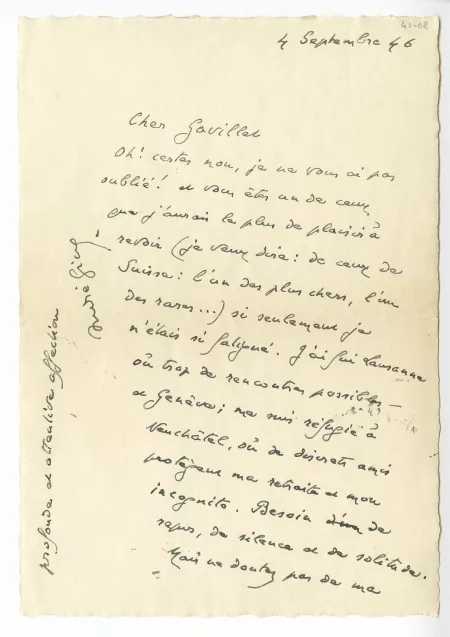 41-08
4 Septembre 46
Cher Gavillet
Oh! certes non, je ne vous ai pas
oublié! et vous êtes un de ceux
que j'aurais le plus de plaisir à
revoir (je veux dire: de ceux de
Suisse: l'un des plus chers, l'un
des rares...) si seulement je
n'étais si fatigué. J'ai fui Lausanne
où trop de rencontres possibles —
et Genève; me suis réfugié à
Neuchâtel, où de discrets amis
protègent ma retraite et mon
incognito. Besoin de
repos, de silence et de solitude.
Mais ne doutez pas de ma
profonde et attentive affection
André Gide